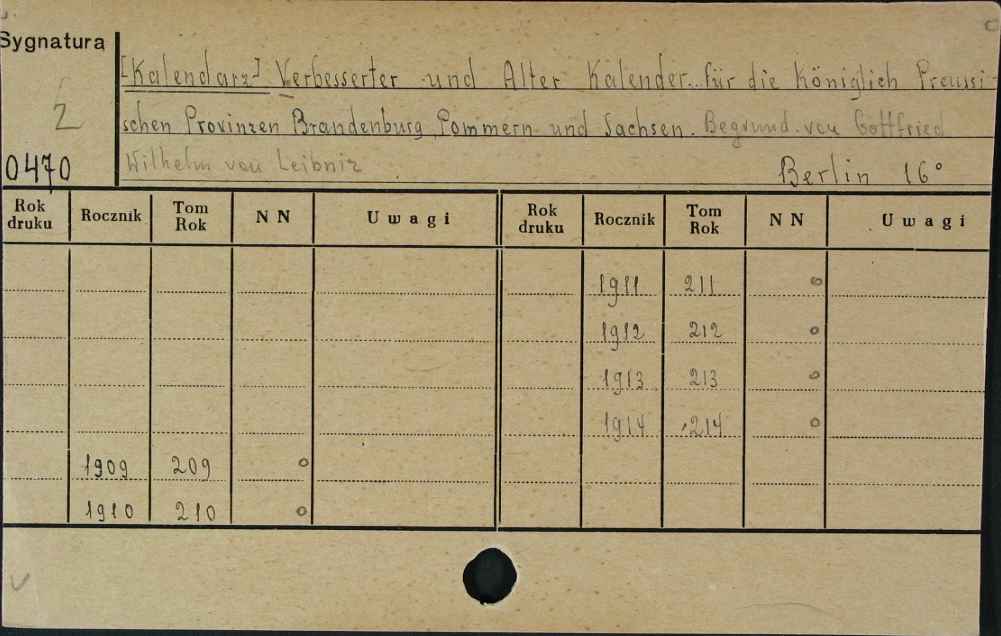 Sygnatura
[Kalendarz] Verbesserter und Alter Kalender..für die Königlich Preussi-
2
schen Provinzen Brandenburg, Pommern und Sachsen. Begrund. von Gottfried
0470
Wilhelm von Leibniz
Berlin 16°
Rok druku Rocznik Tom Rok NN Uwagi Rok druku Rocznik Tom Rok NN Uwagi
1911 211 o
1912 212 o
1913 213 o
1914 214 o
1909 209 o
1910 210 o